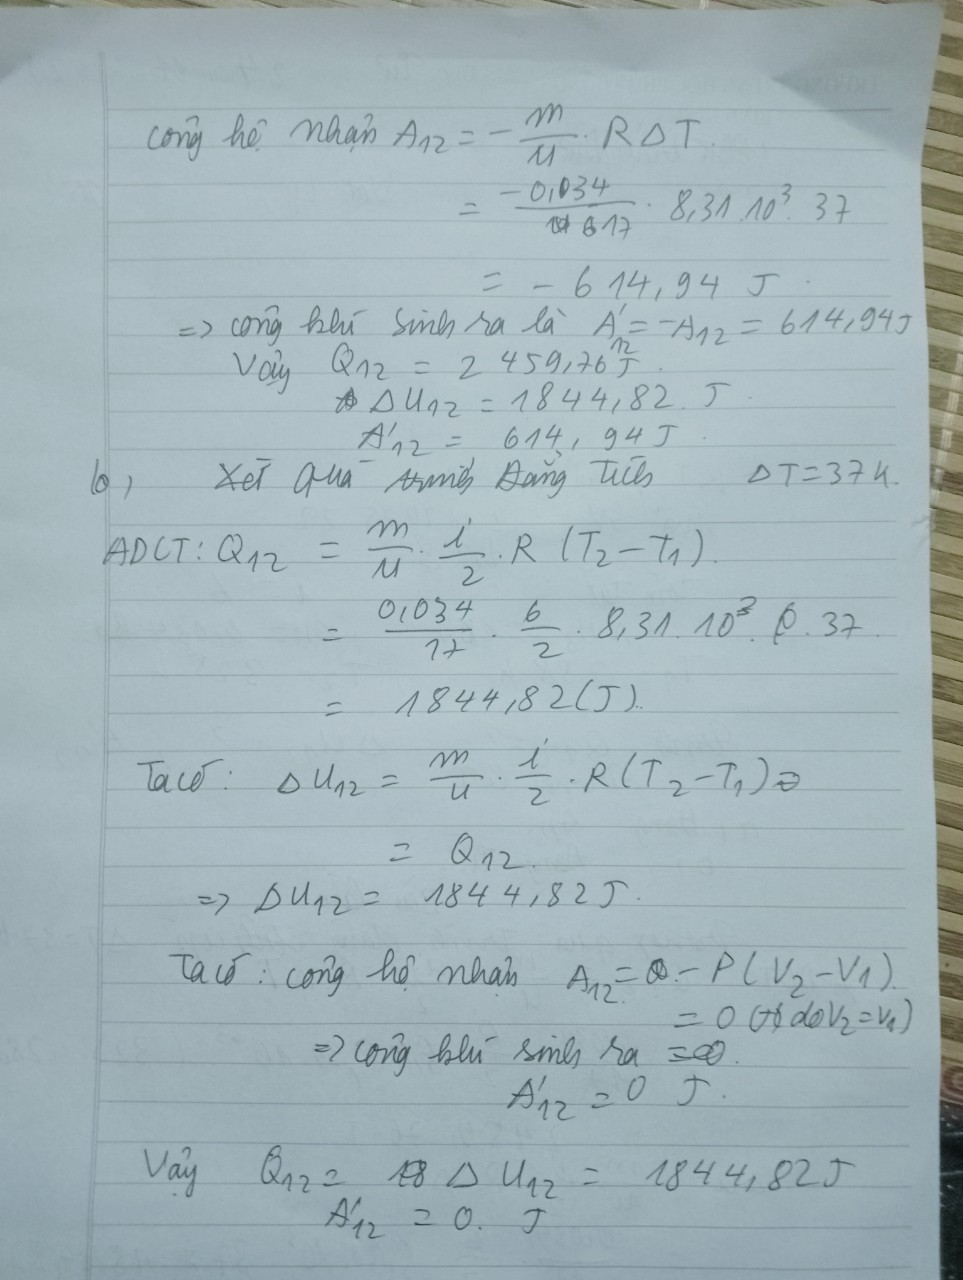 công hệ nhận A12 = - m/μ . R Δ T.
= -0,034/17 . 8,31.10³. 37
= - 614,94 J.
=> công khí sinh ra là A'12 = -A12 = 614,94J
Vậy Q12 = 2 459,76 J.
Δ U12 = 1844,82. J
A'12 = 614,94 J.
b, Xét quá trình đẳng tích ΔT = 37K.
ADCT: Q12 = m/μ . i/2 . R (T2 - T1).
= 0,034/17 . 6/2 . 8,31.10³. 37
= 1844,82 (J).
Ta có: Δ U12 = m/μ . i/2 . R (T2 - T1)
= Q12.
=> Δ U12 = 1844,82 J.
Ta có: công hệ nhận A12 = - P (V2 - V1).
= 0 (do V2 = V1)
=> công khí sinh ra
A'12 = 0 J.
Vậy Q12 = Δ U12 = 1844,82 J
A'12 = 0. J